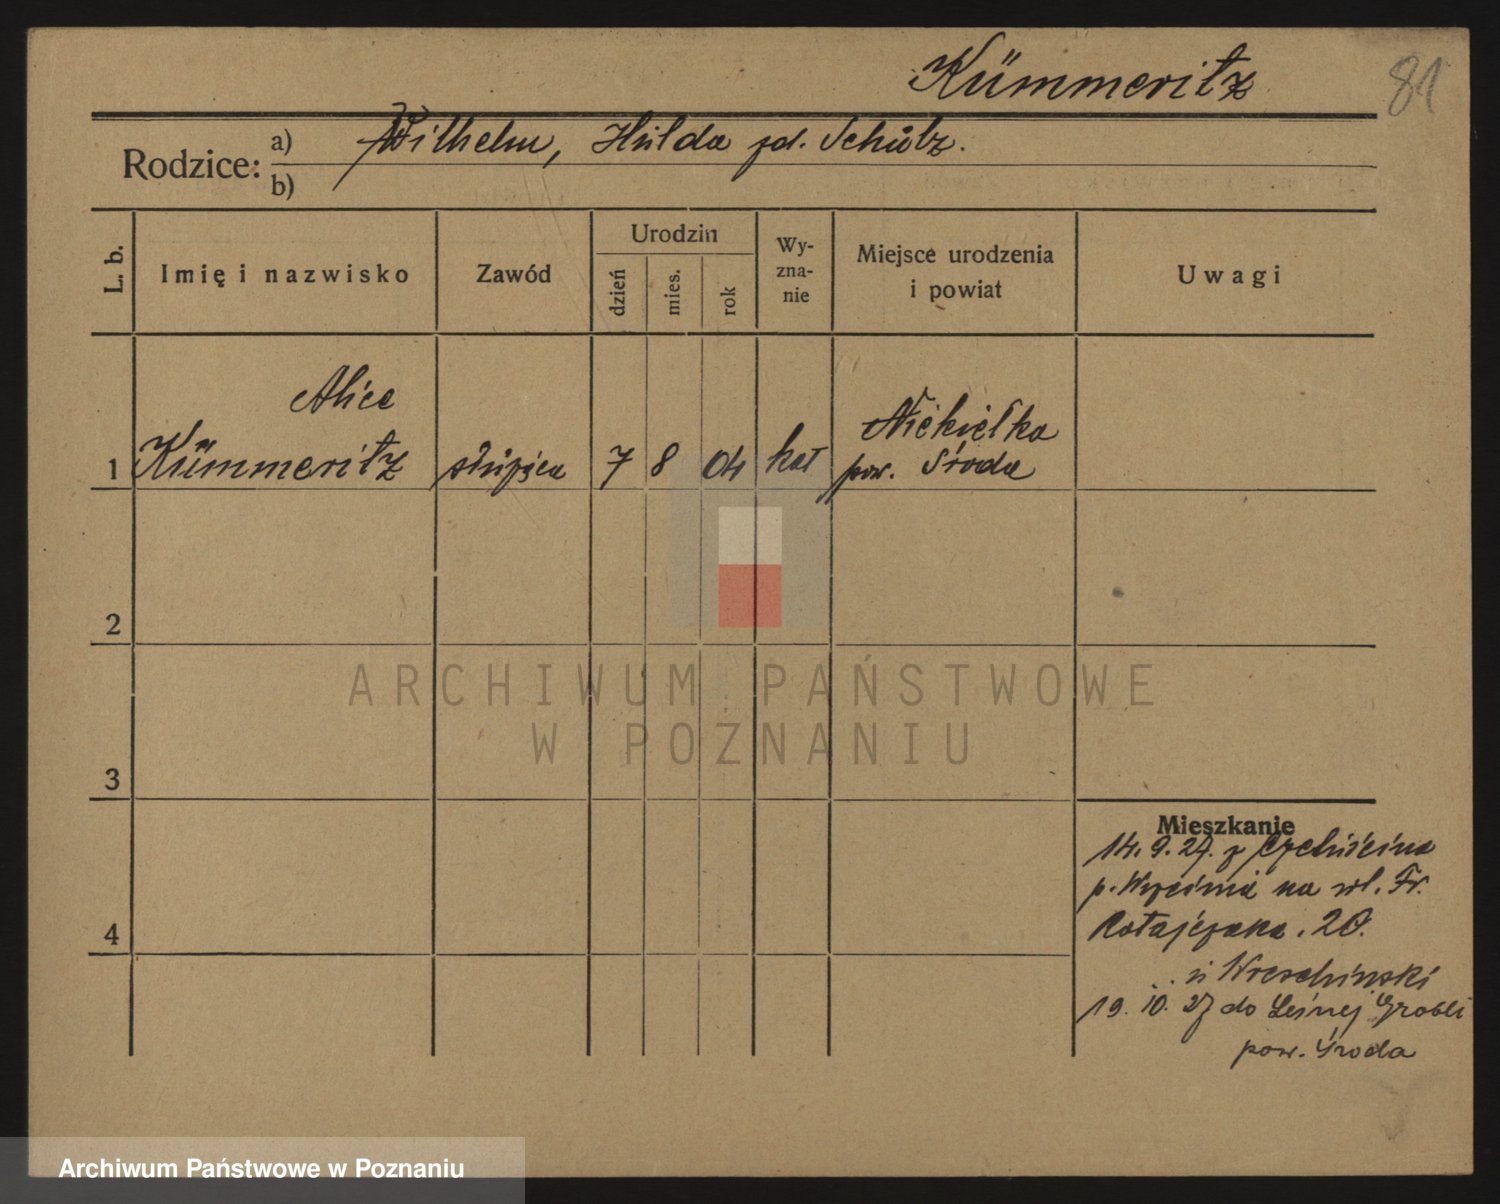 Kümmeritz
81
Rodzice:
a) Wilhelm, Hulda zd. Schulz.
b)
L. b.
Imię i nazwisko
Zawód
Urodzin
dzień
mies.
rok
Wy-
zna-
nie
Miejsce urodzenia
i powiat
Uwagi
Alice
1 Kümmeritz
7 8 04 kat
Niekielka
pow. Środa
2
3
4
Mieszkanie
14. 9. 27. z
p. Września na ul. Fr.
Ratajczaka. 20.
u
19. 10. 27 do Leśnej Grobli
pow. Środa
ARCHIWUM PAŃSTWOWE
W POZNANIU
Archiwum Państwowe w Poznaniu